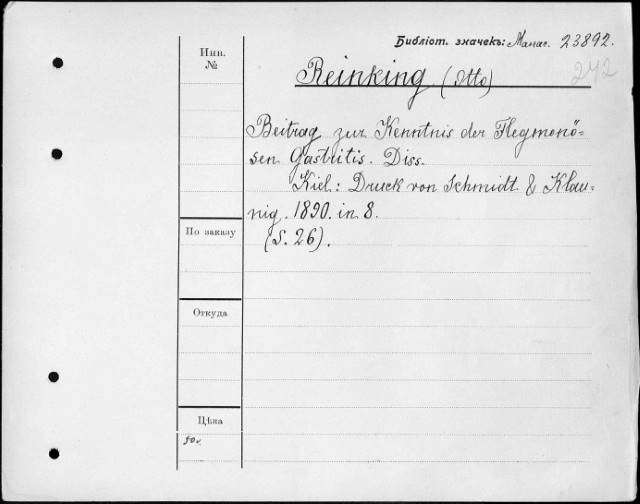 Библіот. значекъ: 23892.
Инв. №
242
Reinking (Otto)
Beitrag zur Kenntnis der Flegmonö-
sen Gastritis. Diss.
Kiel: Druck von Schmidt & Klau-
nig. 1890. in 8.
(S. 26).
По заказу
Откуда
Цѣна